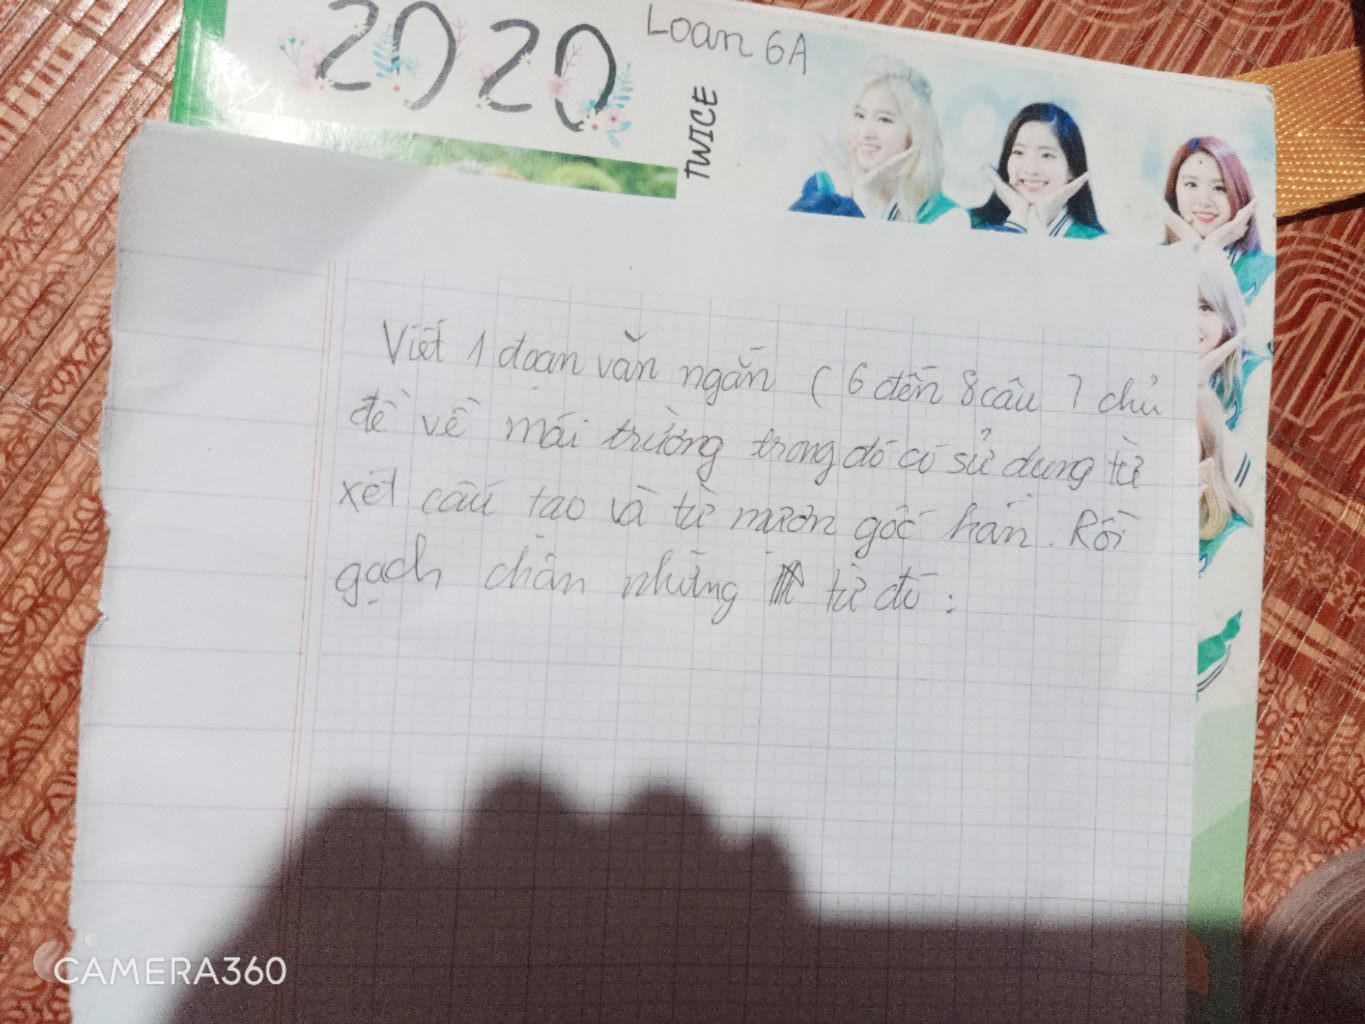 2020
Loan 6A
TWICE
Viết 1 đoạn văn ngắn ( 6 đến 8 câu ) chủ
đề về mái trường trong đó có sử dụng từ
xét cấu tạo và từ mượn gốc hán. Rồi
gạch chân những từ đó :
CAMERA360